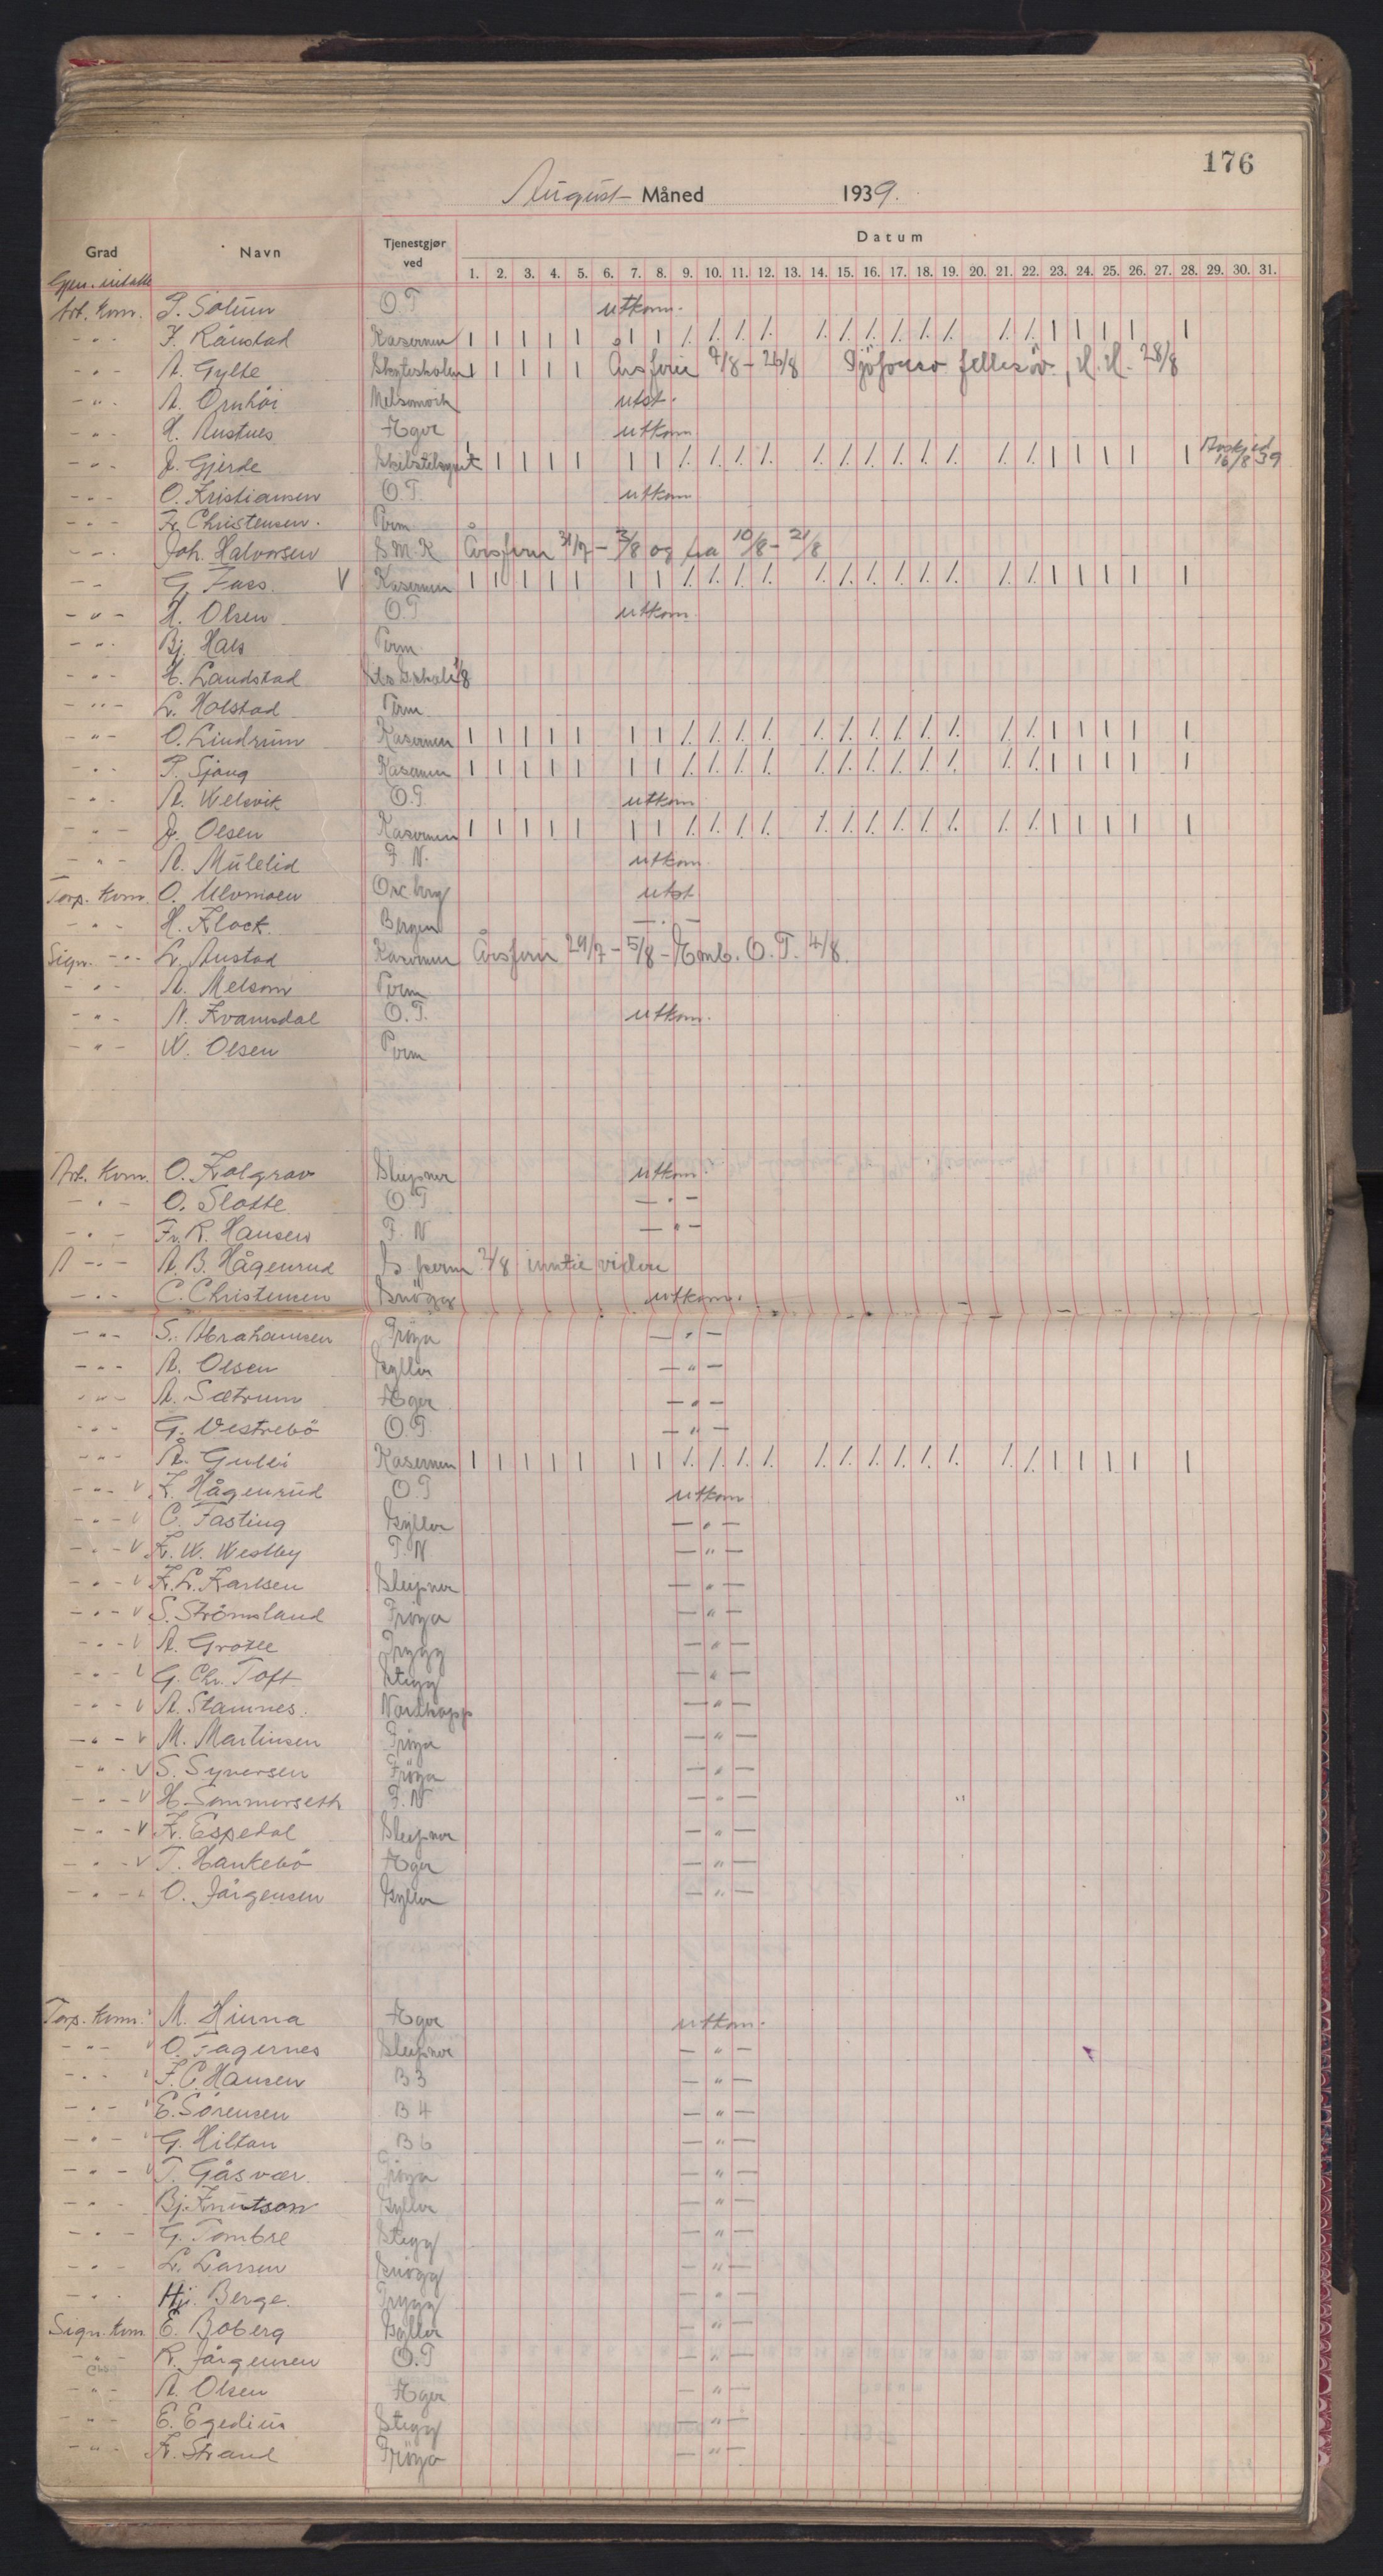 176
August Måned 1939.
Grad Navn Tjenestgjør ved Datum
1. 2. 3. 4. 5. 6. 7. 8. 9. 10. 11. 12. 13. 14. 15. 16. 17. 18. 19. 20. 21. 22. 23. 24. 25. 26. 27. 28. 29. 30. 31.
Art. Kom. P. Solum O T utkom.
- " - F. Rånstad Kasernen | | | | | | | /. /. /. /. /. /. /. /. /. /. /. /. | | | | |
- " - A. Gylte Skyteskolen | | | | | Årsferie 7/8 - 26/8 fellesöv., H. H. 28/8
- " - A. Örnhöi Melsomvik utst.
- " - H. Austnes Æger utkom
- " - J. Gjerde | | | | | | | /. /. /. /. /. /. /. /. /. /. /. /. | | | | | Avskjed 16/8 39
- " - O. Kristiansen O.T. utkom
- " - Fr. Christensen. Perm
- " - Joh. Halvorsen S.M.K Årsferie 31/7 - 3/8 og fra 10/8 - 21/8
- " - G. Faes. V Kasernen | | | | | | | /. /. /. /. /. /. /. /. /. /. /. /. | | | | |
- " - H. Olsen O.T utkom.
- " - Bj. Hals Perm.
- " - H. Landstad 1/8
- " - L. Holstad Perm.
- " - O. Lindrum Kasernen | | | | | | | /. /. /. /. /. /. /. /. /. /. /. /. | | | | |
- " - P. Sjong Kasernen | | | | | | | /. /. /. /. /. /. /. /. /. /. /. /. | | | | |
- " - A. Welsvik O.T utkom
- " - J. Olsen Kasernen | | | | | | | /. /. /. /. /. /. /. /. /. /. /. /. | | | | |
- " - A. Mulelid F. N. utkom.
Torp. Kom. O. Ulvmoen Osc borg utst
- " - H. Klock. Bergen - " -
Sign. - " - L. Austad Kasernen Årsferie 29/7 - 5/8 - Emb. O. T. 4/8.
- " - A. Melsom Perm
- " - N. Kvamsdal O. T. utkom.
- " - W. Olsen Perm
Art. Kom. O. Kolgrav Sleipner utkom.
- " - O. Slotte O T - " -
- " - Fr. R. Hansen F. N - " -
A - " - A. B. Hågenrud S. perm 2/8 inntil videre
- " - C. Christensen Snögg utkom.
- " - S. Abrahamsen Fröya - " -
- " - A. Olsen Gyller - " -
- " - A. Sætrum Æger - " -
- " - G. Vestrebö O.T. - " -
- " - Å. Gulli Kasernen | | | | | | | /. /. /. /. /. /. /. /. /. /. /. /. | | | | |
- " - V K. Hågenrud O.T utkom
- " - V C. Fasting Gyller - " -
- " - V K. W. Westby F. N - " -
- " - V K. L. Karlsen Sleipner - " -
- " - V S. Strömsland Fröya - " -
- " - V A. Grotle Trygg - " -
- " - V G. Chr. Toft Stegg - " -
- " - V A. Stamnes. Nordkapp - " -
- " - V M. Martinsen Fröya - " -
- " - V S. Syversen Fröya - " -
- " - V H. Sommerseth F. N - " -
- " - V K. Espedal Sleipner - " -
- " - V T. Haukebö Æger - " -
- " - V O. Jörgensen Gyller - " -
Torp. Kom. M. Hinna Æger utkom.
- " - O. Fagernes Sleipner - " -
- " - F. C. Hansen B 3 - " -
- " - E. Sörensen B 4 - " -
- " - G. Hiltan B 6 - " -
- " - T. Gåsvær. Fröya - " -
- " - Bj. Knutson Gyller - " -
- " - G. Tombre Stegg - " -
- " - L. Larsen Snögg - " -
- " - Hj. Berge. Trygg - " -
Sign. Kom. E. Boberg Gyller - " -
- " - R. Jörgensen O.T - " -
- " - A. Olsen Æger - " -
- " - E. Egedius Stegg - " -
- " - K. Strand Fröya - " -